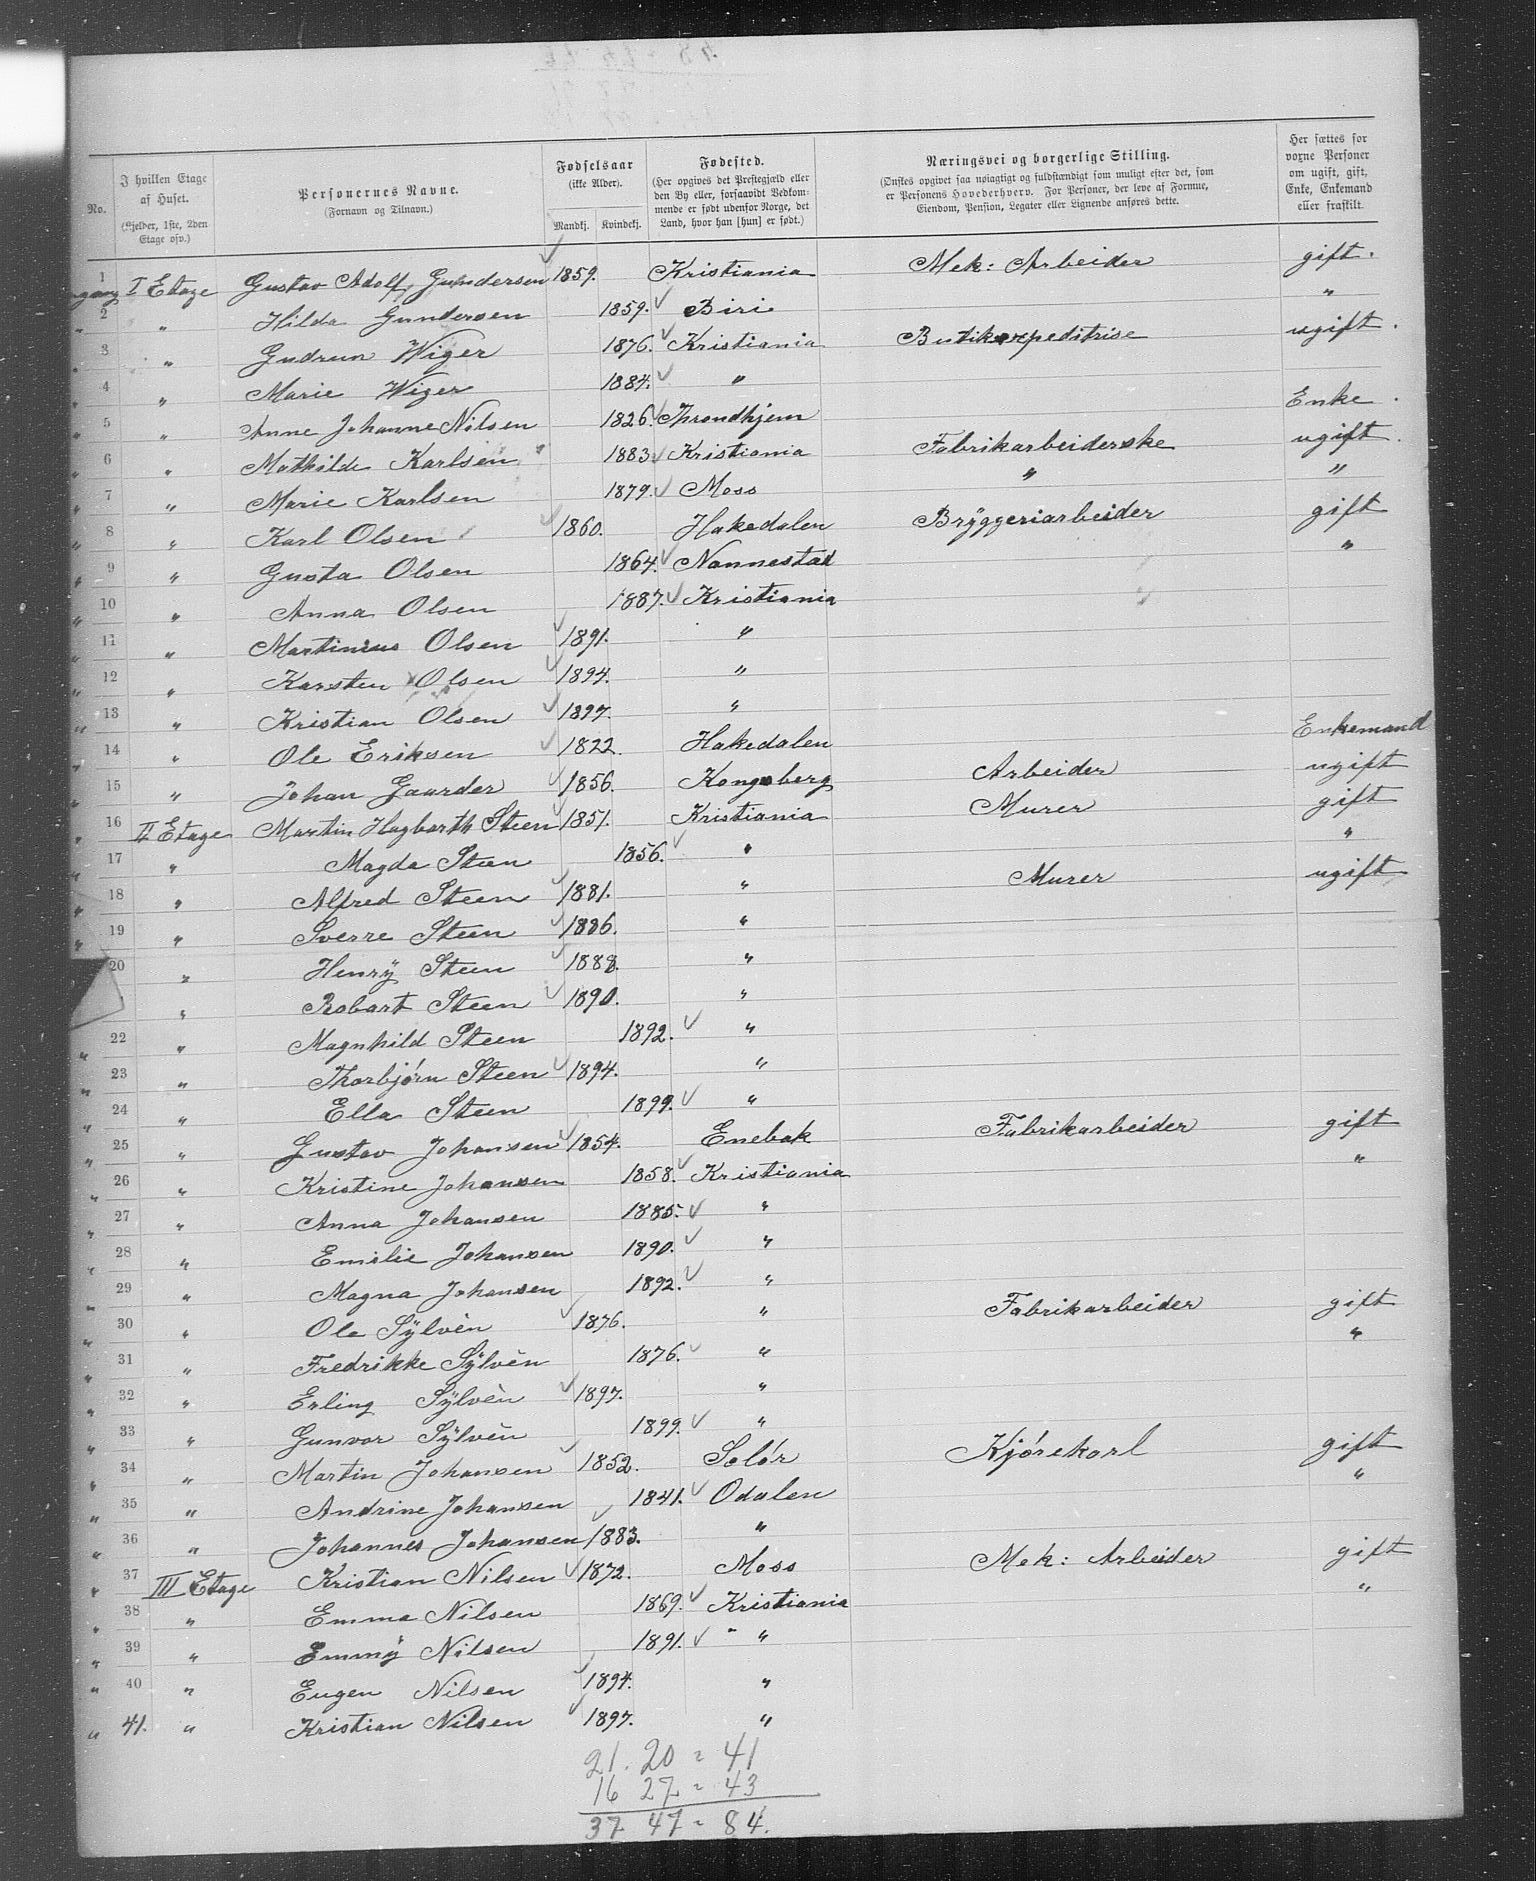 No. | I hvilken Etage af Huset. (Kjelder, 1ste, 2den Etage osv.) | Personernes Navne. (Fornavn og Tilnavn.) | Fødselsaar (ikke Alder). Mandkj. Kvindekj. | Fødested. (Her opgives det Prestegjæld eller den By eller, forsaavidt Vedkommende er født udenfor Norge, det Land, hvor han [hun] er født.) | Næringsvei og borgerlige Stilling. (Ønskes opgivet saa nøiagtigt og fuldstændigt som muligt efter det, som er Personens Hovederhverv. For Personer, der leve af Formue, Eiendom, Pension, Legater eller Lignende anføres dette. | Her sættes for voxne Personer om ugift, gift, Enke, Enkemand eller fraskilt.
1 I Etage Gustav Adolf Gundersen 1859. Kristiania Mek: Arbeider gift.
2 " Hilda Gundersen 1859. Biri "
3 " Gudrun Wiger 1876. Kristiania Butikexpeditrise ugift.
4 " Marie Wiger 1884. "
5 " Anne Johanne Nilsen 1826. Throndhjem Enke.
6 " Mathilde Karlsen 1883. Kristiania Fabrikarbeiderske ugift.
7 " Marie Karlsen 1879. Moss " "
8 " Karl Olsen 1860. Hakedalen Bryggeriarbeider gift
9 " Gusta Olsen 1864. Nannestad "
10 " Anna Olsen 1887. Kristiania
11 " Martinius Olsen 1891. "
12 " Karsten Olsen 1894. "
13 " Kristian Olsen 1897. "
14 " Ole Eriksen 1822. Hakedalen Enkemand
15 " Johan Gaarder 1856. Kongsberg Arbeider ugift
16 II Etage Martin Hagbarth Steen 1851. Kristiania Murer gift
17 " Magda Steen 1856. " "
18 " Alfred Steen 1881. " Murer ugift
19 " Sverre Steen 1886. "
20 " Henry Steen 1888. "
" Robart Steen 1890. "
22 " Magnhild Steen 1892. "
23 " Thorbjørn Steen 1894. "
24 " Ella Steen 1899. "
25 " Gustav Johansen 1854. Enebak Fabrikarbeider gift
26 " Kristine Johansen 1858. Kristiania "
27 " Anna Johansen 1885. "
28 " Emilie Johansen 1890. "
29 " Magna Johansen 1892. "
30 " Ole Sylvèn 1876. " Fabrikarbeider gift
31 " Fredrikke Sylvèn 1876. " "
32 " Erling Sylvèn 1897. "
33 " Gunvor Sylvèn 1899. "
34 " Martin Johansen 1852. Solør Kjørekarl gift
35 " Andrine Johansen 1841. Odalen "
36 " Johannes Johansen 1883. "
37 III Etage Kristian Nilsen 1872. Moss Mek: Arbeider gift
38 " Emma Nilsen 1869. Kristiania "
39 " Emmy Nilsen 1891. " "
40 " Eugen Nilsen 1894. "
41. " Kristian Nilsen 1897. "
21. 20 = 41
16 27 = 43
37 47 = 84.